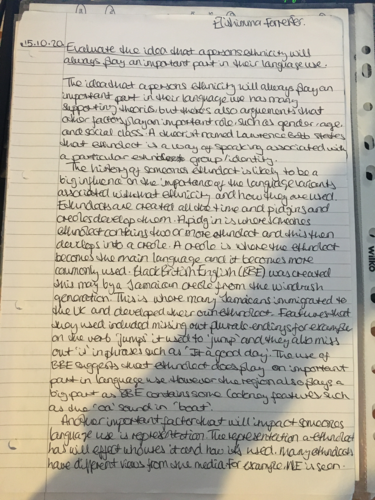 15.10.20 Evaluate the idea that a persons ethnicity will
always play an important part in their language use.
The idea that a persons ethnicity will always play an
important part in their language use has many
supporting theories but there's also arguments that
other factors play an important role such as gender, age,
and social class. A theorist named Lawrence states
that ethnolect is a way of speaking associated with
a particular ethnic group/identity.
The history of someones ethnolect is likely to be a
big influence on the importance of the language variants
associated with that ethnicity and how they are used.
Ethnolects are created all the time and pidgins and
creoles develop them. A pidgin is where someones
ethnolect contains two or more ethnolect and this then
develops into a creole. A creole is where the ethnolect
becomes the main language and it becomes more
commonly used. Black British English (BBE) was created
this way by a Jamaican creole from the windrush
generation. This is where many Jamaicans immigrated to
the UK and developed their own ethnolect. Features that
they used included missing out plurals endings for example
on the verb 'jumps' it used to 'jump' and they also miss
out 'is' in phrases such as "It a good day". The use of
BBE suggests that ethnolect does play an important
part in language use. However the region also plays a
big part as BBE contains some Cockney features such
as the "oa" sound in "boat".
Another important factor that will impact someones
language use is representation. The representation a ethnolect
has will effect who uses it and how its used. Many ethnolects
have different views from the media for example MLE is seen
Wilko